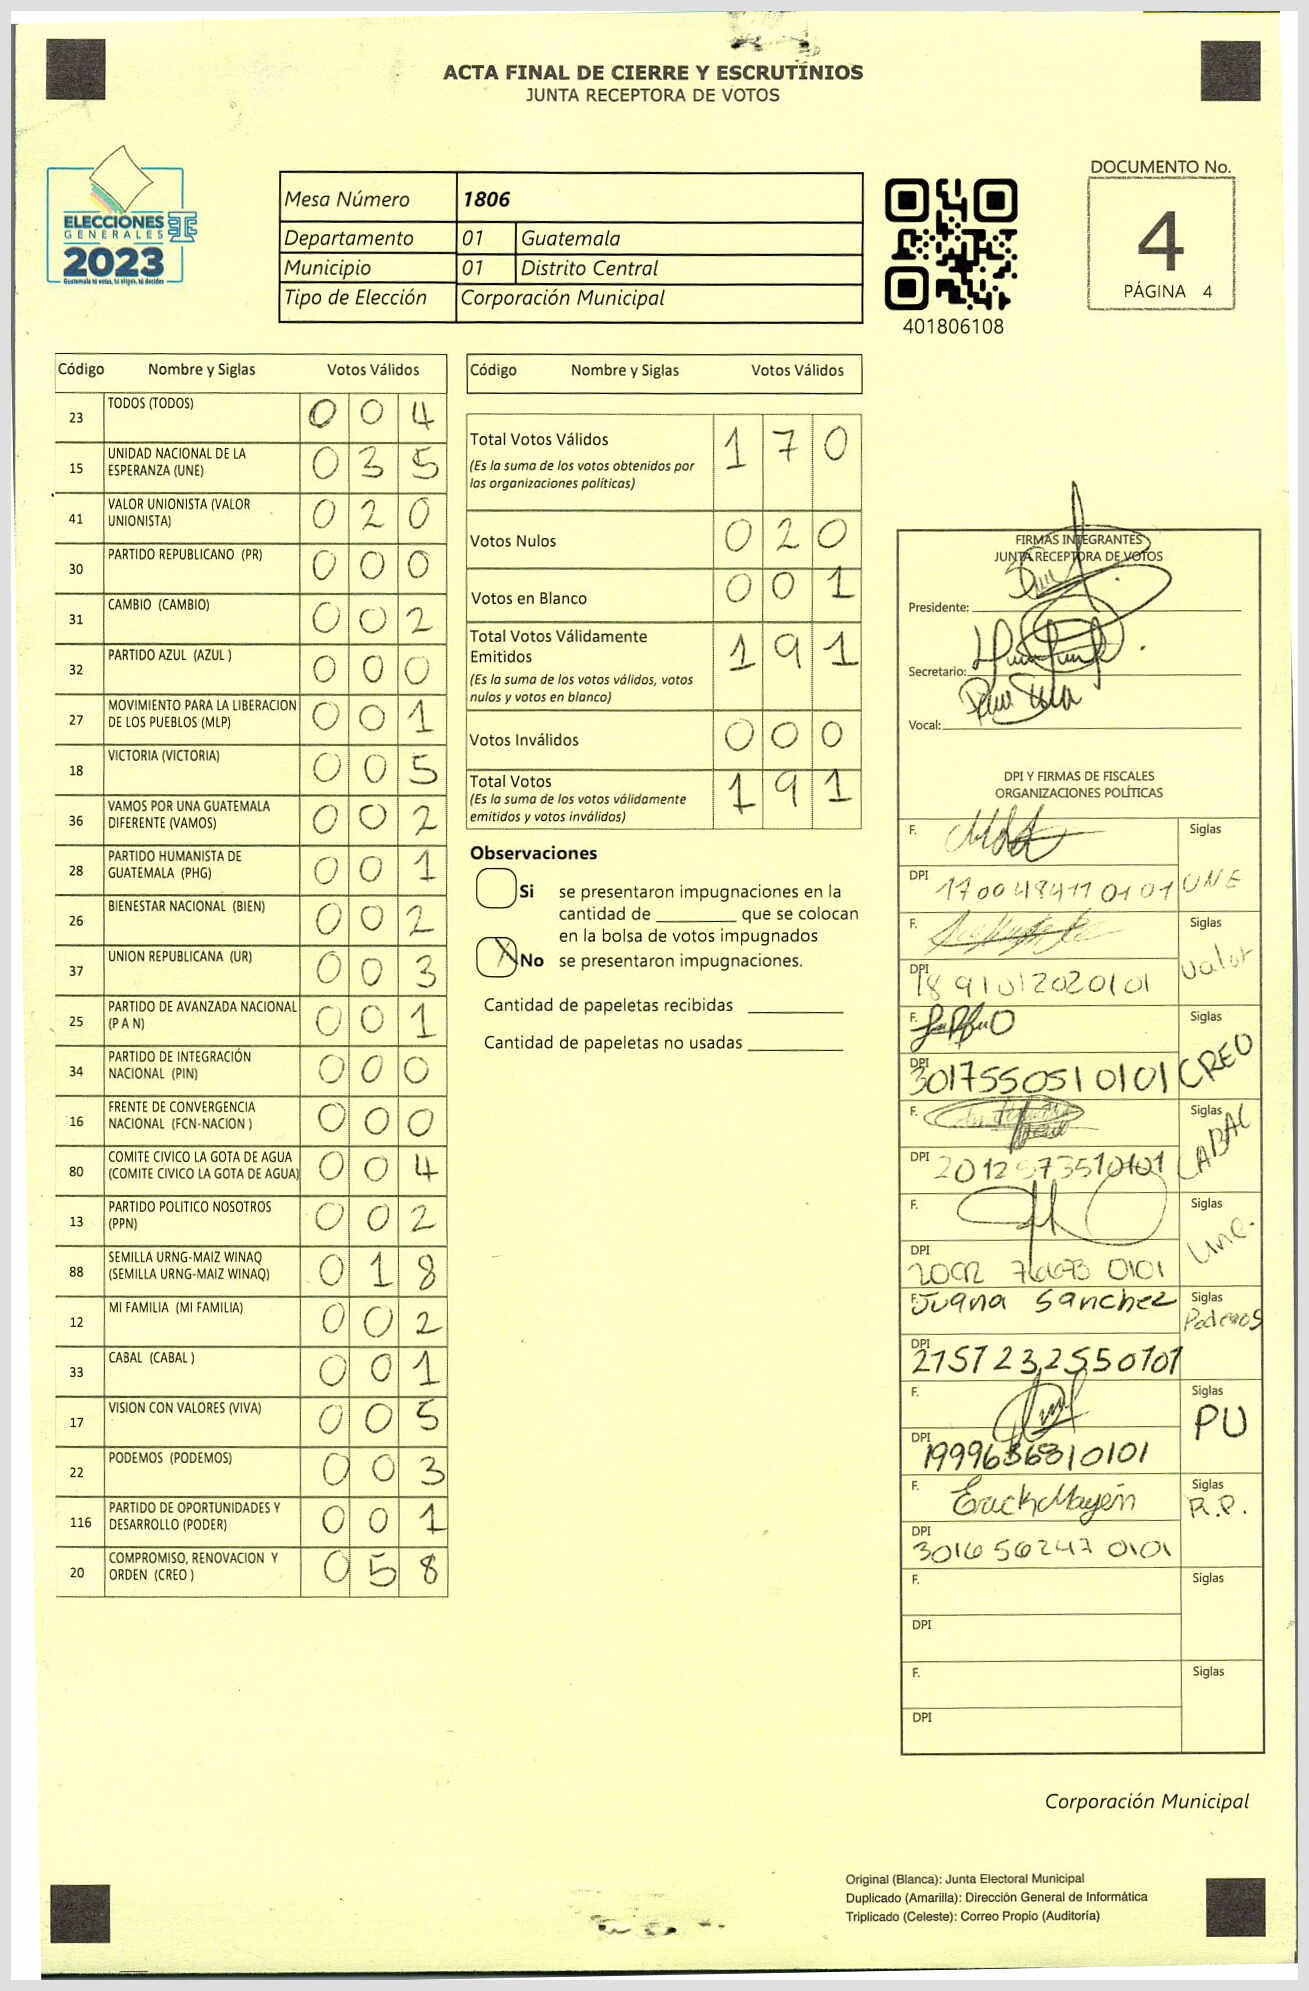 ACTA FINAL DE CIERRE Y ESCRUTINIOS
JUNTA RECEPTORA DE VOTOS
ELECCIONES
GENERALES
2023
Guatemala tú votas, tú eliges, tú decides
Mesa Número 1806
Departamento 01 Guatemala
Municipio 01 Distrito Central
Tipo de Elección Corporación Municipal
401806108
DOCUMENTO No.
4
PÁGINA 4
Código Nombre y Siglas Votos Válidos
23 TODOS (TODOS) 0 0 4
15 UNIDAD NACIONAL DE LA
ESPERANZA (UNE) 0 3 5
41 VALOR UNIONISTA (VALOR
UNIONISTA) 0 2 0
30 PARTIDO REPUBLICANO (PR) 0 0 0
31 CAMBIO (CAMBIO) 0 0 2
32 PARTIDO AZUL (AZUL ) 0 0 0
27 MOVIMIENTO PARA LA LIBERACION
DE LOS PUEBLOS (MLP) 0 0 1
18 VICTORIA (VICTORIA) 0 0 5
36 VAMOS POR UNA GUATEMALA
DIFERENTE (VAMOS) 0 0 2
28 PARTIDO HUMANISTA DE
GUATEMALA (PHG) 0 0 1
26 BIENESTAR NACIONAL (BIEN) 0 0 2
37 UNION REPUBLICANA (UR) 0 0 3
25 PARTIDO DE AVANZADA NACIONAL
(P A N) 0 0 1
34 PARTIDO DE INTEGRACIÓN
NACIONAL (PIN) 0 0 0
16 FRENTE DE CONVERGENCIA
NACIONAL (FCN-NACION ) 0 0 0
80 COMITE CIVICO LA GOTA DE AGUA
(COMITE CIVICO LA GOTA DE AGUA) 0 0 4
13 PARTIDO POLITICO NOSOTROS
(PPN) 0 0 2
88 SEMILLA URNG-MAIZ WINAQ
(SEMILLA URNG-MAIZ WINAQ) 0 1 8
12 MI FAMILIA (MI FAMILIA) 0 0 2
33 CABAL (CABAL ) 0 0 1
17 VISION CON VALORES (VIVA) 0 0 5
22 PODEMOS (PODEMOS) 0 0 3
116 PARTIDO DE OPORTUNIDADES Y
DESARROLLO (PODER) 0 0 1
20 COMPROMISO, RENOVACION Y
ORDEN (CREO ) 0 5 8
Código Nombre y Siglas Votos Válidos
Total Votos Válidos 1 7 0
(Es la suma de los votos obtenidos por
las organizaciones políticas)
Votos Nulos 0 2 0
Votos en Blanco 0 0 1
Total Votos Válidamente
Emitidos 1 9 1
(Es la suma de los votos válidos, votos
nulos y votos en blanco)
Votos Inválidos 0 0 0
Total Votos 1 9 1
(Es la suma de los votos válidamente
emitidos y votos inválidos)
Observaciones
Si se presentaron impugnaciones en la
cantidad de ________ que se colocan
en la bolsa de votos impugnados
X No se presentaron impugnaciones.
Cantidad de papeletas recibidas
Cantidad de papeletas no usadas
FIRMAS INTEGRANTES
JUNTA RECEPTORA DE VOTOS
Presidente:
Secretario:
Vocal:
DPI Y FIRMAS DE FISCALES
ORGANIZACIONES POLÍTICAS
F. Siglas
DPI 1700484110101 UNE
F. Siglas
DPI 1891012020101 Valor
F. Siglas
DPI 3017550510101 CREO
F. Siglas
DPI 2012573510101 CABAL
F. Siglas
DPI 0101 Une.
F. Juana Sanchez Siglas
Podemos
DPI
F. Siglas
PU
DPI 1999636810101
F. Erick Mayén Siglas
R.P.
DPI 3016562470101
F. Siglas
DPI
F. Siglas
DPI
Corporación Municipal
Original (Blanca): Junta Electoral Municipal
Duplicado (Amarilla): Dirección General de Informática
Triplicado (Celeste): Correo Propio (Auditoría)